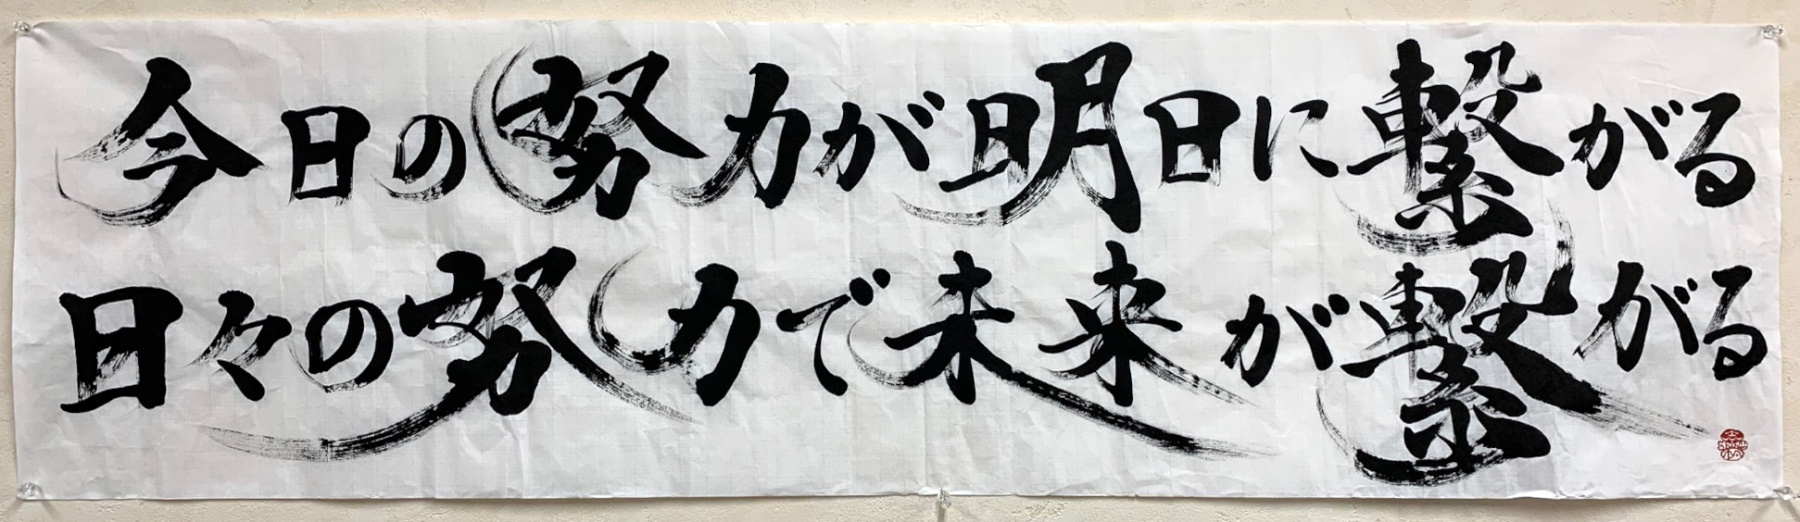 今日の努力が明日に繋がる
日々の努力で未来が繋がる